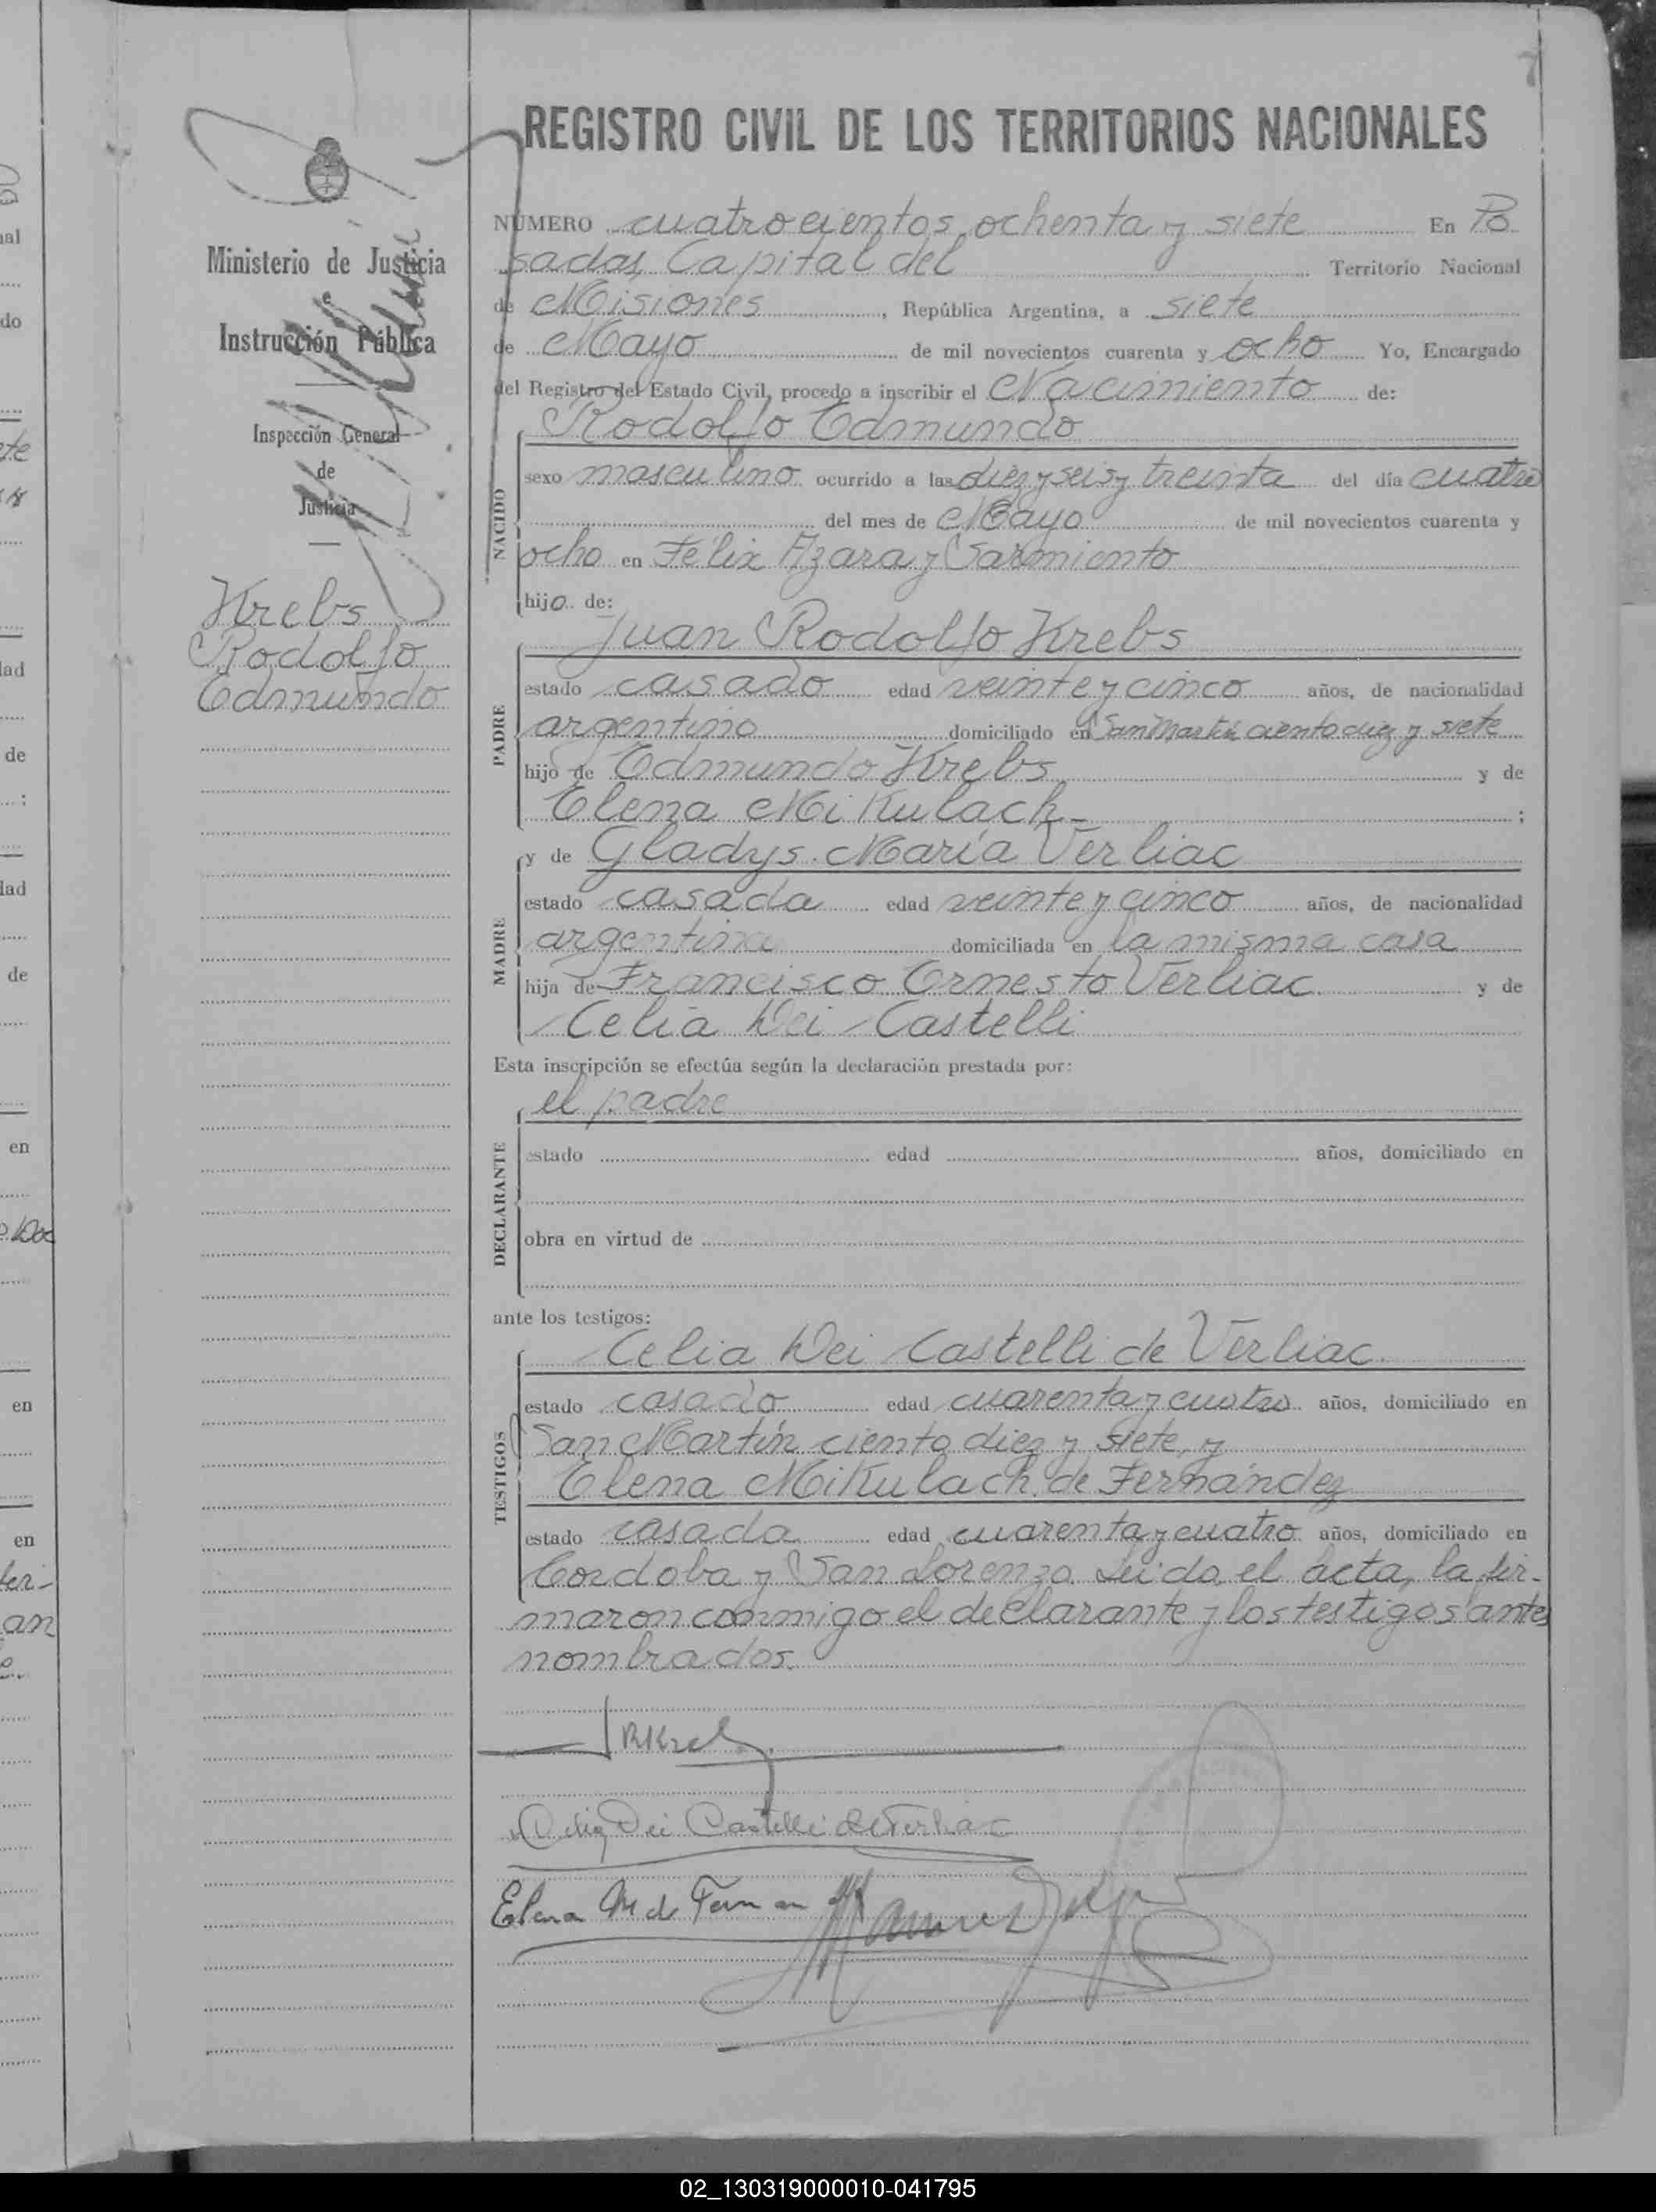 7
REGISTRO CIVIL DE LOS TERRITORIOS NACIONALES
Ministerio de Justicia
e
Instrucción Pública
Inspección General
de
Justicia
Krebs
Rodolfo
Edmundo
NÚMERO cuatrocientos ochenta y siete En Po
sadas, Capital del Territorio Nacional
de Misiones, República Argentina, a siete
de Mayo de mil novecientos cuarenta y ocho Yo, Encargado
del Registro del Estado Civil, procedo a inscribir el Nacimiento de:
Rodolfo Edmundo
NACIDO
sexo masculino ocurrido a las diez y seis y treinta del día cuatro
del mes de Mayo de mil novecientos cuarenta y
ocho en Félix Azara y Sarmiento
hijo de:
Juan Rodolfo Krebs
PADRE
estado casado edad veinte y cinco años, de nacionalidad
argentino domiciliado en San Martín ciento diez y siete
hijo de Edmundo Krebs y de
Elena Mikulach- ;
y de Gladys María Verliac
MADRE
estado casada edad veinte y cinco años, de nacionalidad
argentina domiciliada en la misma casa
hija de Francisco Ernesto Verliac y de
Celia Dei Castelli
Esta inscripción se efectúa según la declaración prestada por:
el padre
DECLARANTE
estado edad años, domiciliado en
obra en virtud de
ante los testigos:
Celia Dei Castelli de Verliac
TESTIGOS
estado casado edad cuarenta y cuatro años, domiciliado en
San Martín ciento diez y siete, y
Elena Mikulach de Fernández
estado casada edad cuarenta y cuatro años, domiciliado en
Cordoba y San Lorenzo. Leida el acta, la fir-
maron conmigo el declarante y los testigos antes
nombrados.
JRKrebs
Celia Dei Castelli de Verliac
Elena M de Fernan
02_130319000010-041795